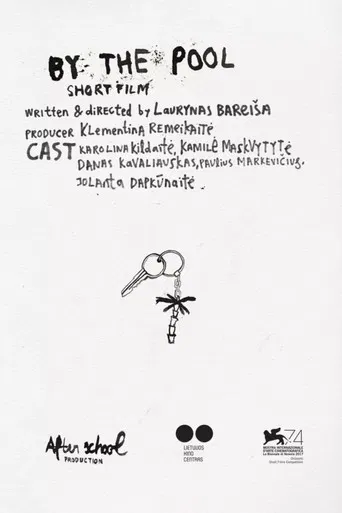 BY THE POOL
SHORT FILM
WRITTEN & DIRECTED by LAURYNAS BAREIŠA
PRODUCER KLEMENTINA REMEIKAITĖ
CAST KAROLINA KILDAITĖ, KAMILĖ MASKVYTYTĖ
DANAS KAVALIAUSKAS, PAULIUS MARKEVIČIUS.
JOLANTA DAPKŪNAITĖ.
After school
PRODUCTION
LIETUVOS
KINO
CENTRAS
74
MOSTRA INTERNAZIONALE
D'ARTE CINEMATOGRAFICA
La Biennale di Venezia 2017
Orizzonti
Short Films Competition